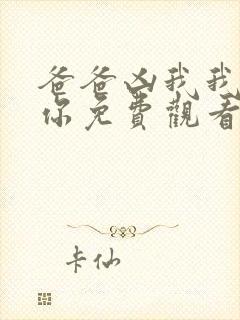 爸爸凶我我
你免費觀看
卡仙